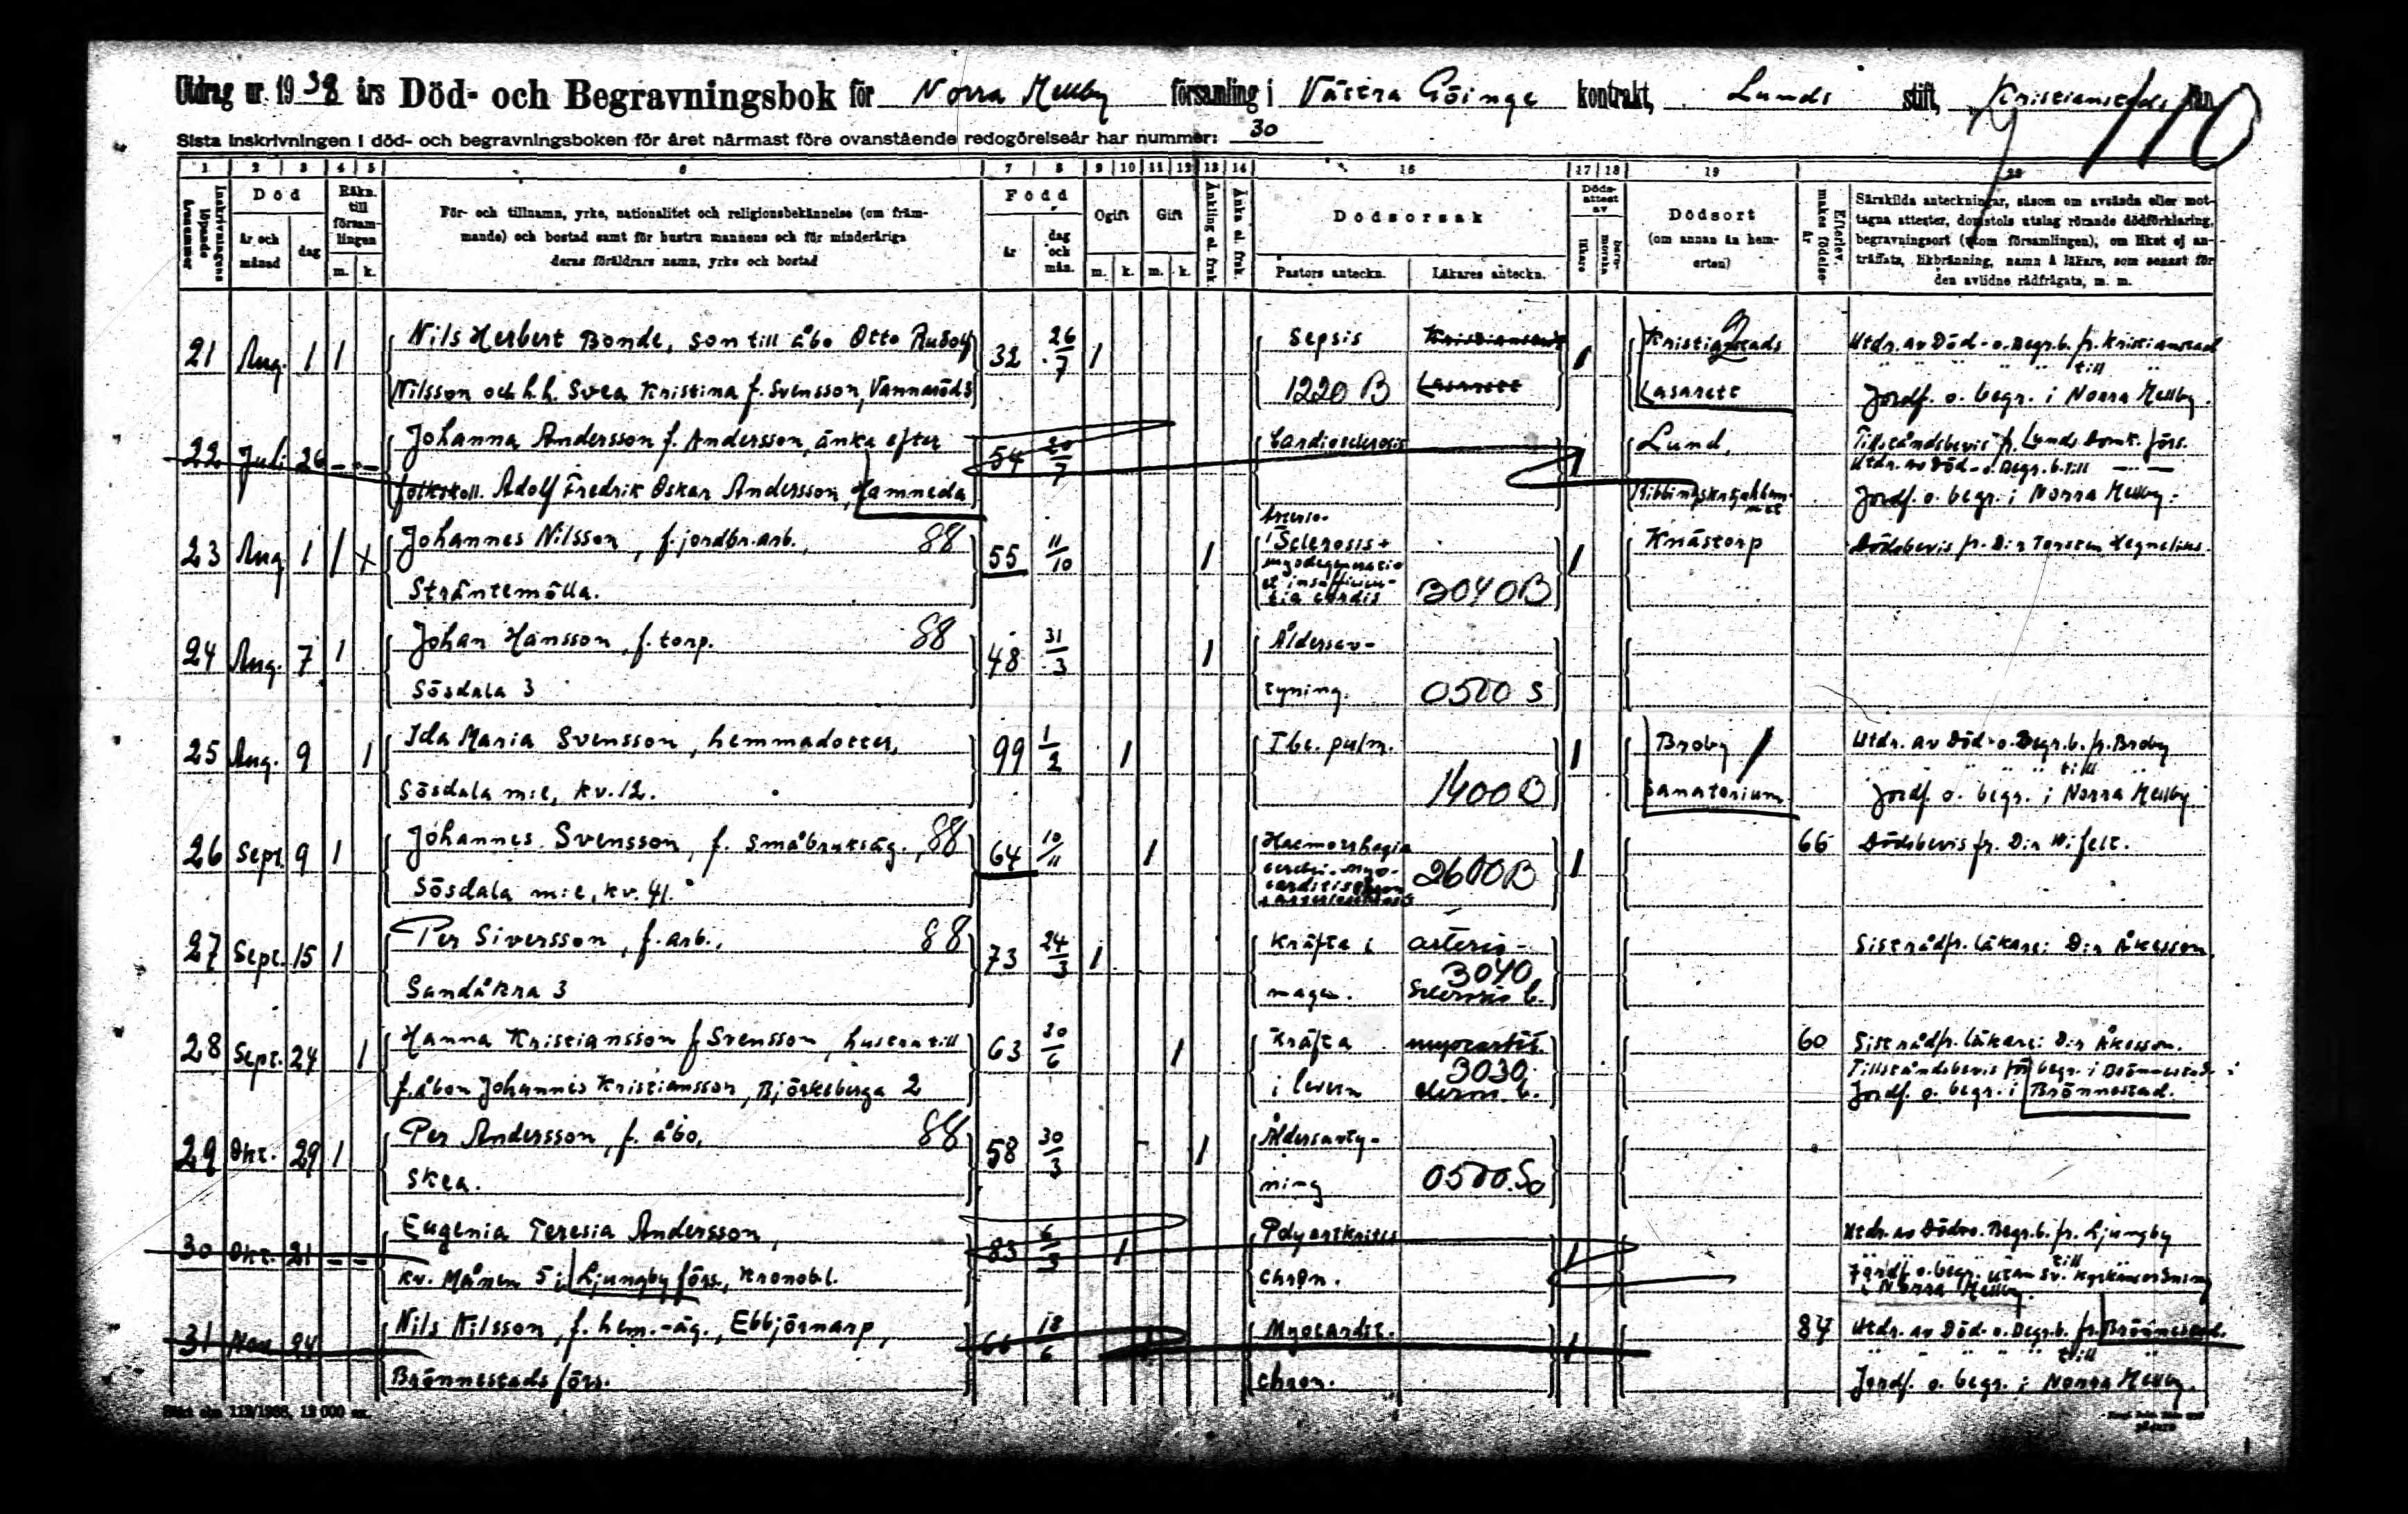 Utdrag ur 1938 års Död- och Begravningsbok för Norra Mellby församling i Västra Göinge kontrakt, Lunds stift, Kristianstads län
110
Sista inskrivningen i död- och begravningsboken för året närmast före ovanstående redogörelseår har nummer: 30
1 2 3 4 5 6 7 8 9 10 11 12 13 14 16 17 18 19
Inskrivningens löpande årsnummer
Död
år och månad
dag
Räkn. till församlingen
m. k.
För- och tillnamn, yrke, nationalitet och religionsbekännelse (om främmande) och bostad samt för hustru mannens och för minderåriga deras föräldrars namn, yrke och bostad
Född
år
dag och mån.
Ogift
m. k.
Gift
m. k.
Änkling el. frnk.
Änka el. frnk.
Dödsorsak
Pastors anteckn.
Läkares anteckn.
Dödsattest av
läkare
barnmorska
Dödsort
(om annan än hemorten)
Efterlev. makes födelseår
Särskilda anteckningar, såsom om avsända eller mottagna attester, domstols utslag rörande dödförklaring, begravningsort (utom församlingen), om liket ej anträffats, likbränning, namn å läkare, som senast för den avlidne rådfrågats, m. m.
21 Aug. 1 1 Nils Herbert Bonde, son till åbo Otto Rudolf 32 26/7 1 Sepsis Kristianstads 1 Kristianstads Utdr. av Död- o. Begr.b. fr. Kristianstad
Nilsson och h.h. Svea Kristina f. Svensson, Vannaröds 1220 B Lasarett Lasarett " " " till "
Jordf. o. begr. i Norra Mellby.
22 Juli 26 - - Johanna Andersson f. Andersson, änka efter 54 20/7 Cardiosclerosis 1 Lund, Tillståndsbevis fr. Lunds Domk. förs.
Utdr. av Död- o. Begr.b. till
folkskoll. Adolf Fredrik Oskar Andersson, Hamneda Jordf. o. begr. i Norra Mellby.
23 Aug 1 1 x Johannes Nilsson, f. jordbr.arb., 88 55 11/10 1 Arterio-Sclerosis + myodegeneratio et insufficientia cordis 1 Knästorp Dödsbevis fr. D:r Torsten Hegnelius.
Sträntemölla. 3040B
24 Aug. 7 1 Johan Hansson, f. torp. 88 48 31/3 1 Åldersav-
Sösdala 3 tyning. 0500 S
25 Aug. 9 1 Ida Maria Svensson, hemmadotter, 99 1/2 1 Tbc. pulm. 1 Broby Utdr. av Död- o. Begr.b. fr. Broby
" " " till "
Sösdala m:e, kv. 12. 1400B Sanatorium Jordf. o. begr. i Norra Mellby
26 Sept. 9 1 Johannes Svensson, f. småbruksäg., 88 64 10/11 1 Haemorrhagia cerebri. Myocarditis 2600B 1 66 Dödsbevis fr. D:r Wifelt.
Sösdala m:e, kv. 41.
27 Sept. 15 1 Per Siversson, f. arb., 88 73 24/3 1 Kräfta i arterio- Sist rådfr. läkare: D:r Åkesson.
3040
Sandåkra 3 magen. Sclerosis c.
28 Sept. 24 1 Hanna Kristiansson f Svensson, hustru till 63 20/6 1 Kräfta 60 Sist rådfr. läkare: D:r Åkesson.
3030 Tillståndsbevis för begr. i Brönnestad
f. åbon Johannes Kristiansson, Björkeberga 2 i levern Jordf. o. begr. i Brönnestad.
29 Okt. 29 1 Per Andersson, f. åbo, 88 58 30/3 1 Åldersavty-
Skea. ning 0500.So
30 Okt. 21 - - Eugenia Teresia Andersson, 83 6/3 1 Polyarthrites 1 Utdr. av Död- o. Begr.b. fr. Ljungby
till
kv. Månen 5 i Ljungby förs., Kronob.l. chron. Jordf. o. begr. utan sv. kyrkans ordning i Norra Mellby.
31 Nov 24 Nils Nilsson, f. hem.-äg., Ebbjörnarp, 66 18/6 1 Myocardit. 1 84 Utdr. av Död- o. Begr.b. fr. Brönnestad.
" " " till "
Brönnestads förs. chron. Jordf. o. begr. i Norra Mellby.